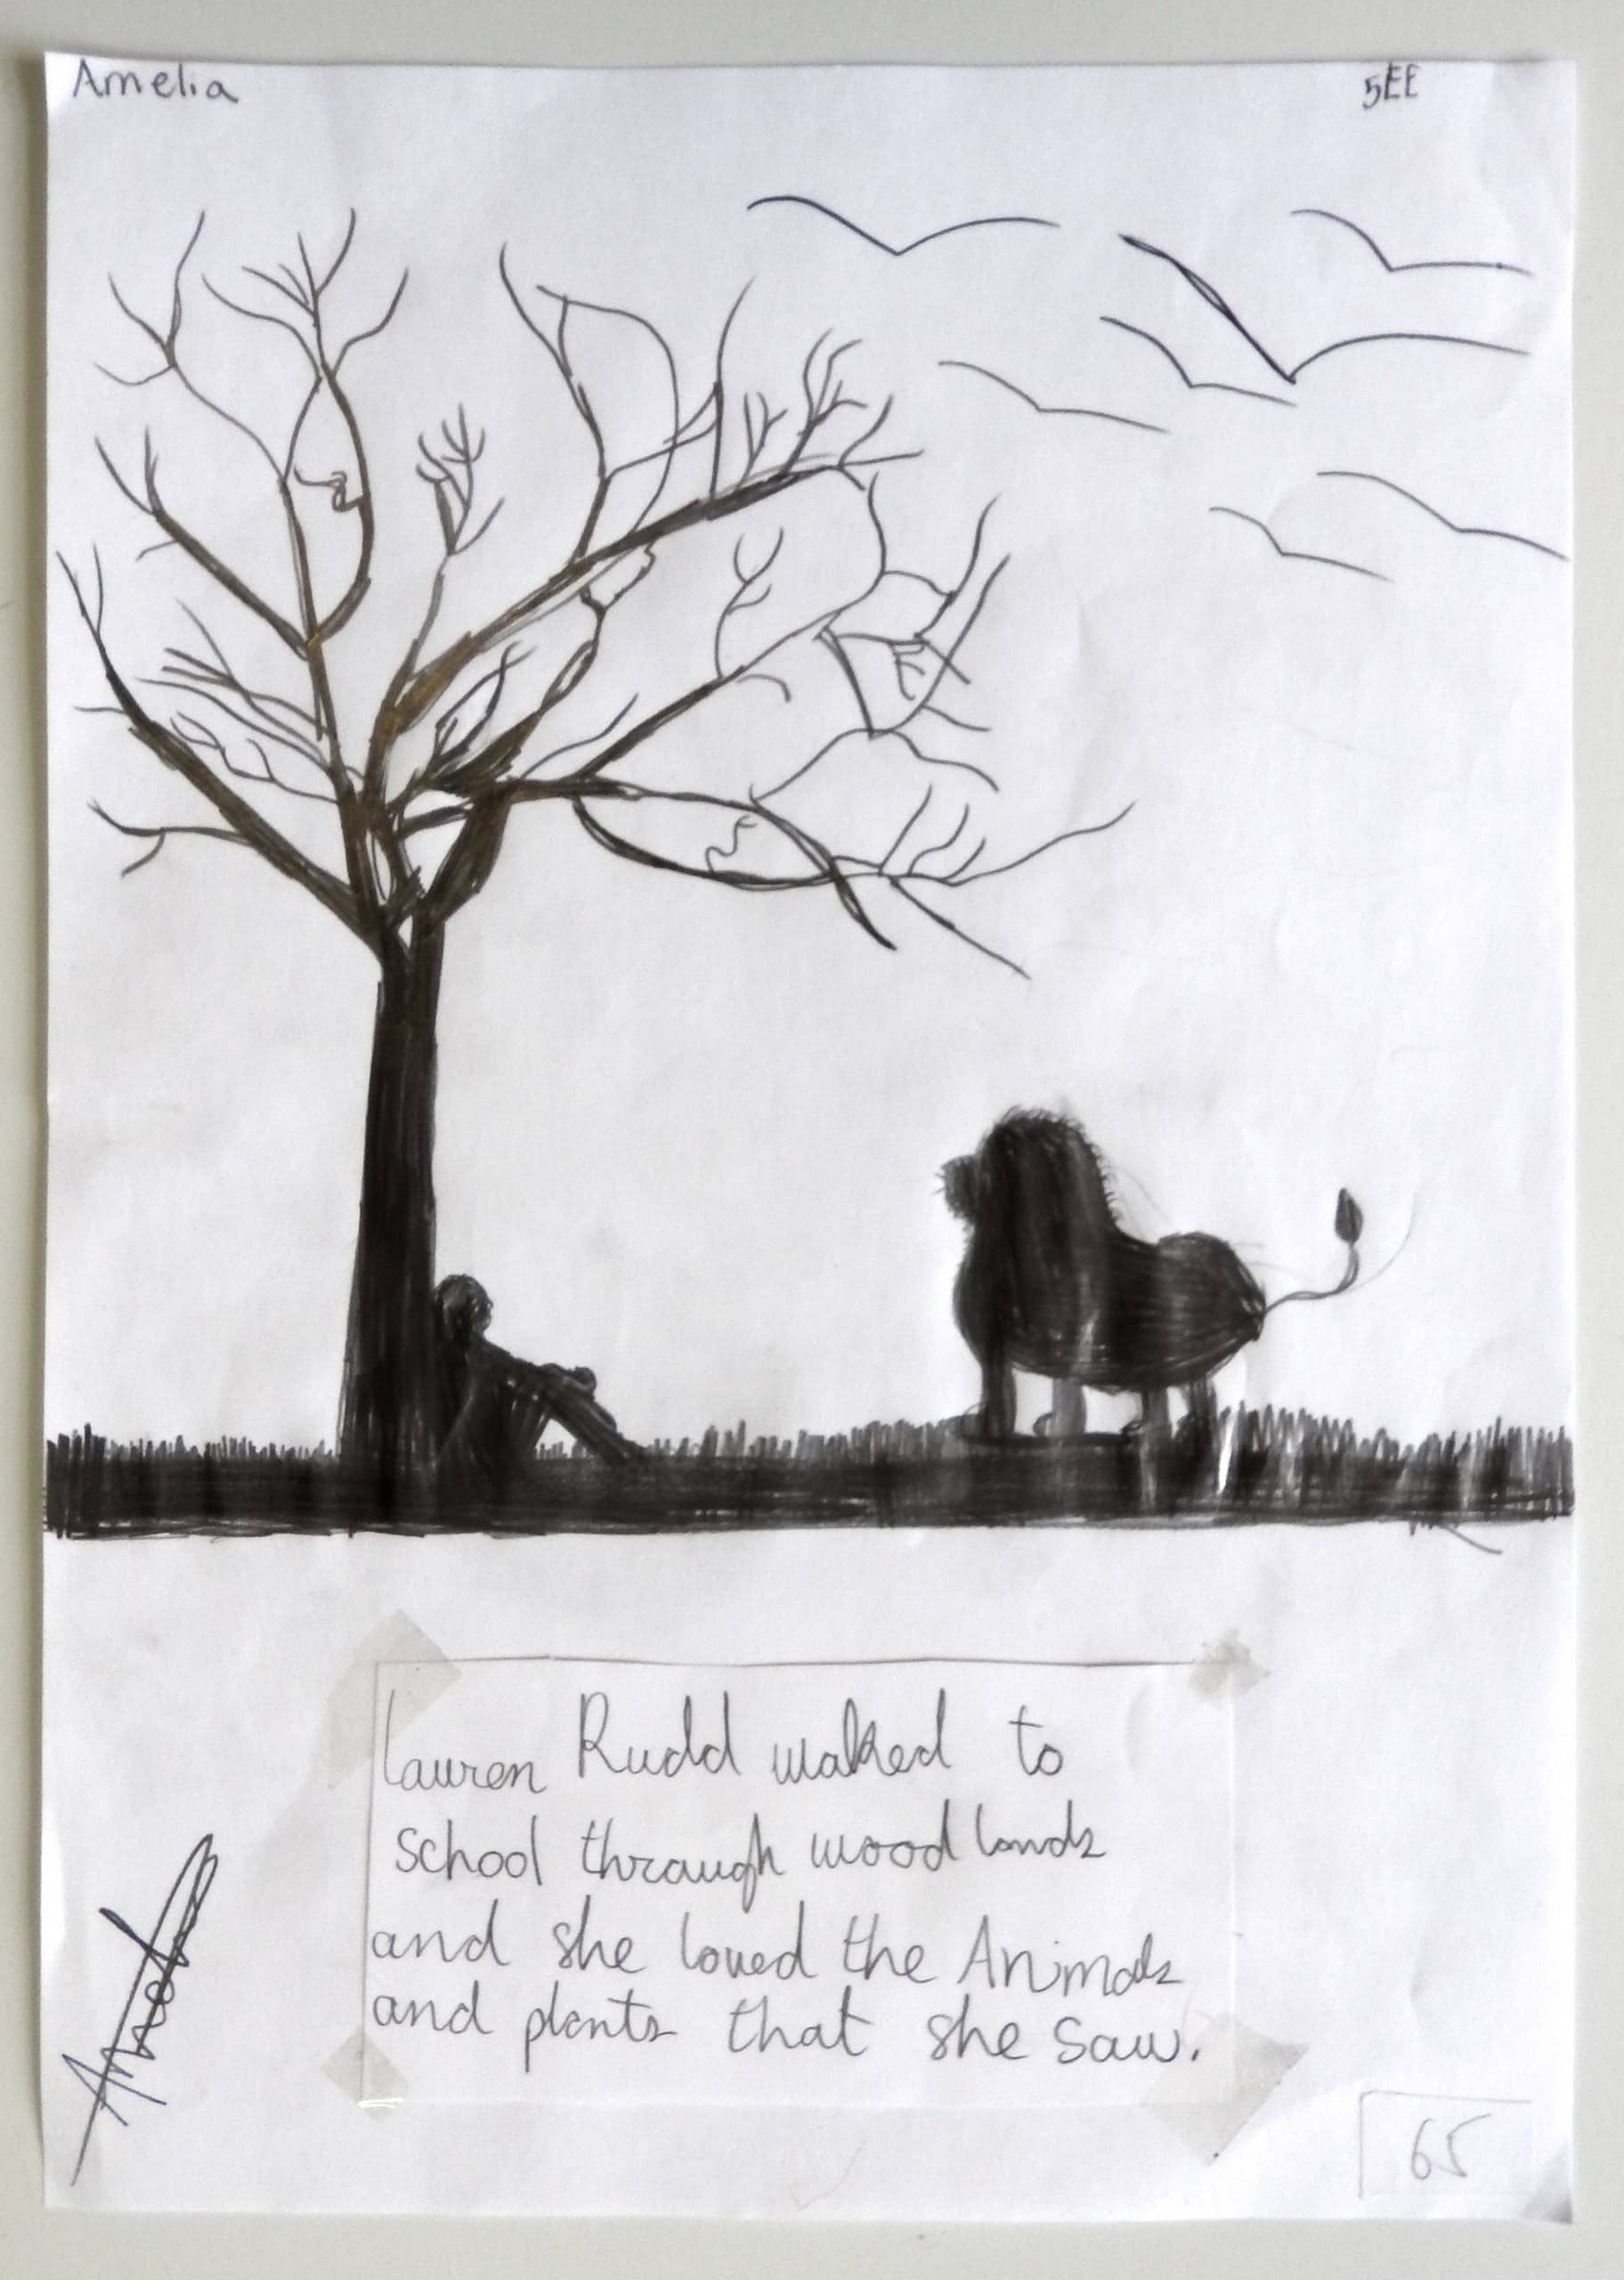 Amelia
5EE
Lauren Rudd walked to
school through wood lands
and she loved the Animals
and plants that she saw.
65